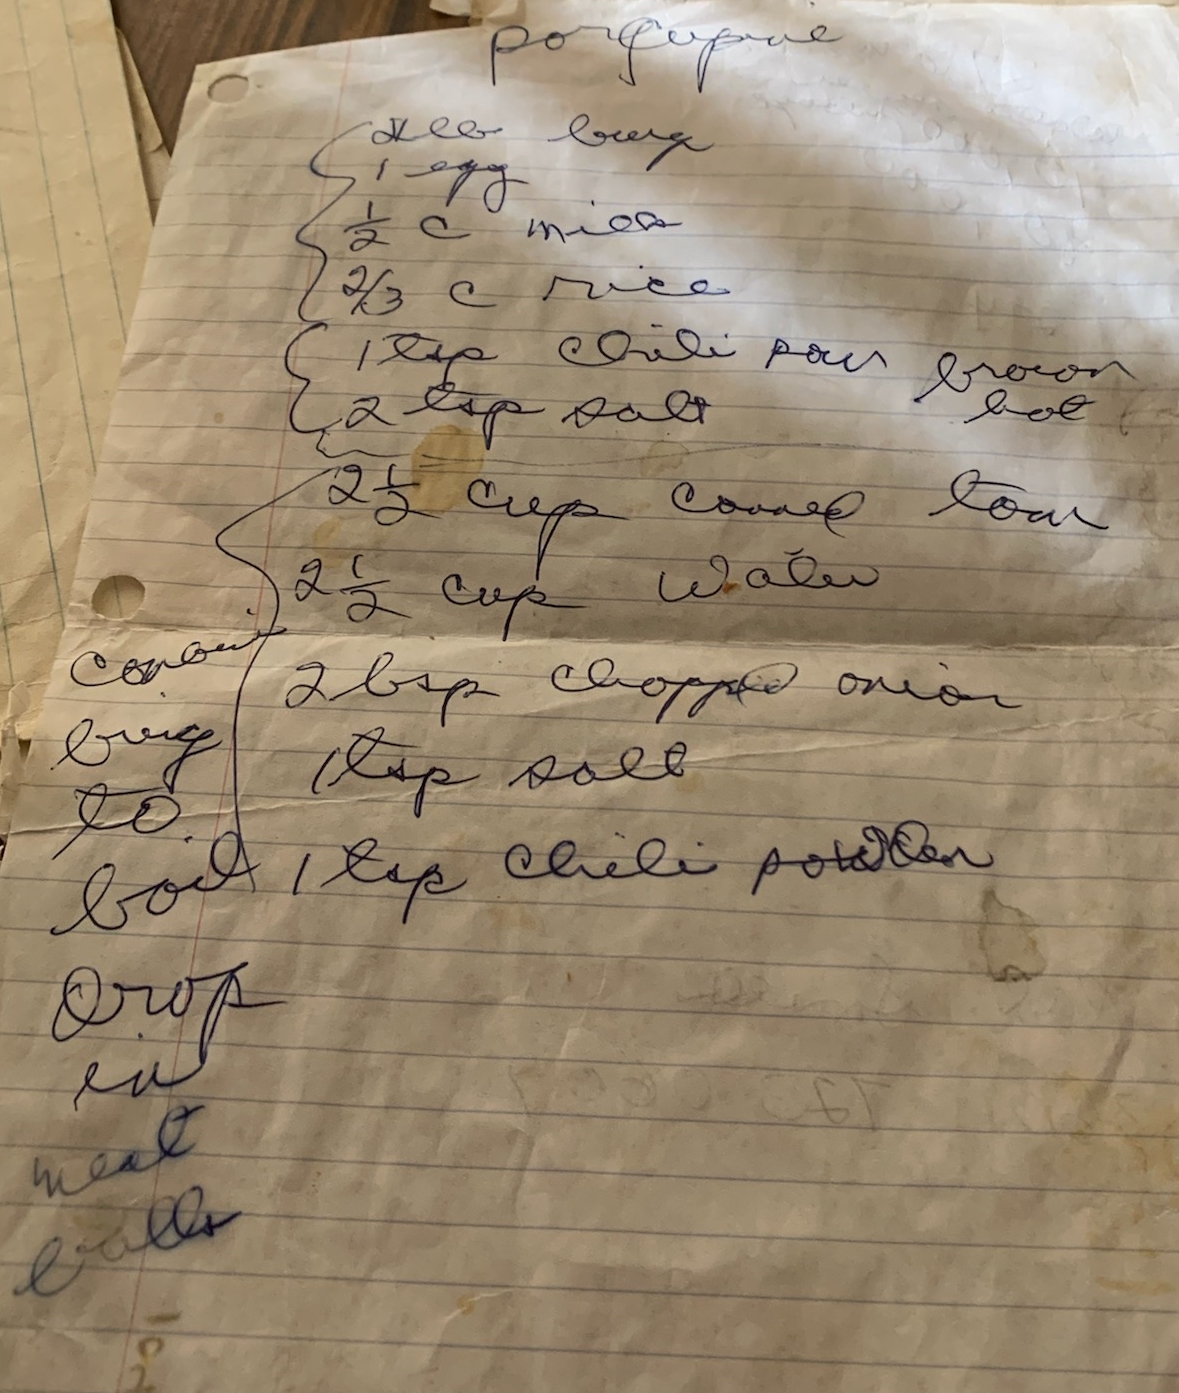 porcupine
lb burg
1 egg
1/2 c milk
2/3 c rice
1 tsp chili pow brown
2 tsp salt hot
2 1/2 cup canned tom
2 1/2 cup water
2 bsp chopped onion
1 tsp salt
1 tsp chili powder
burg
to
boil
Drop
in
meat
balls